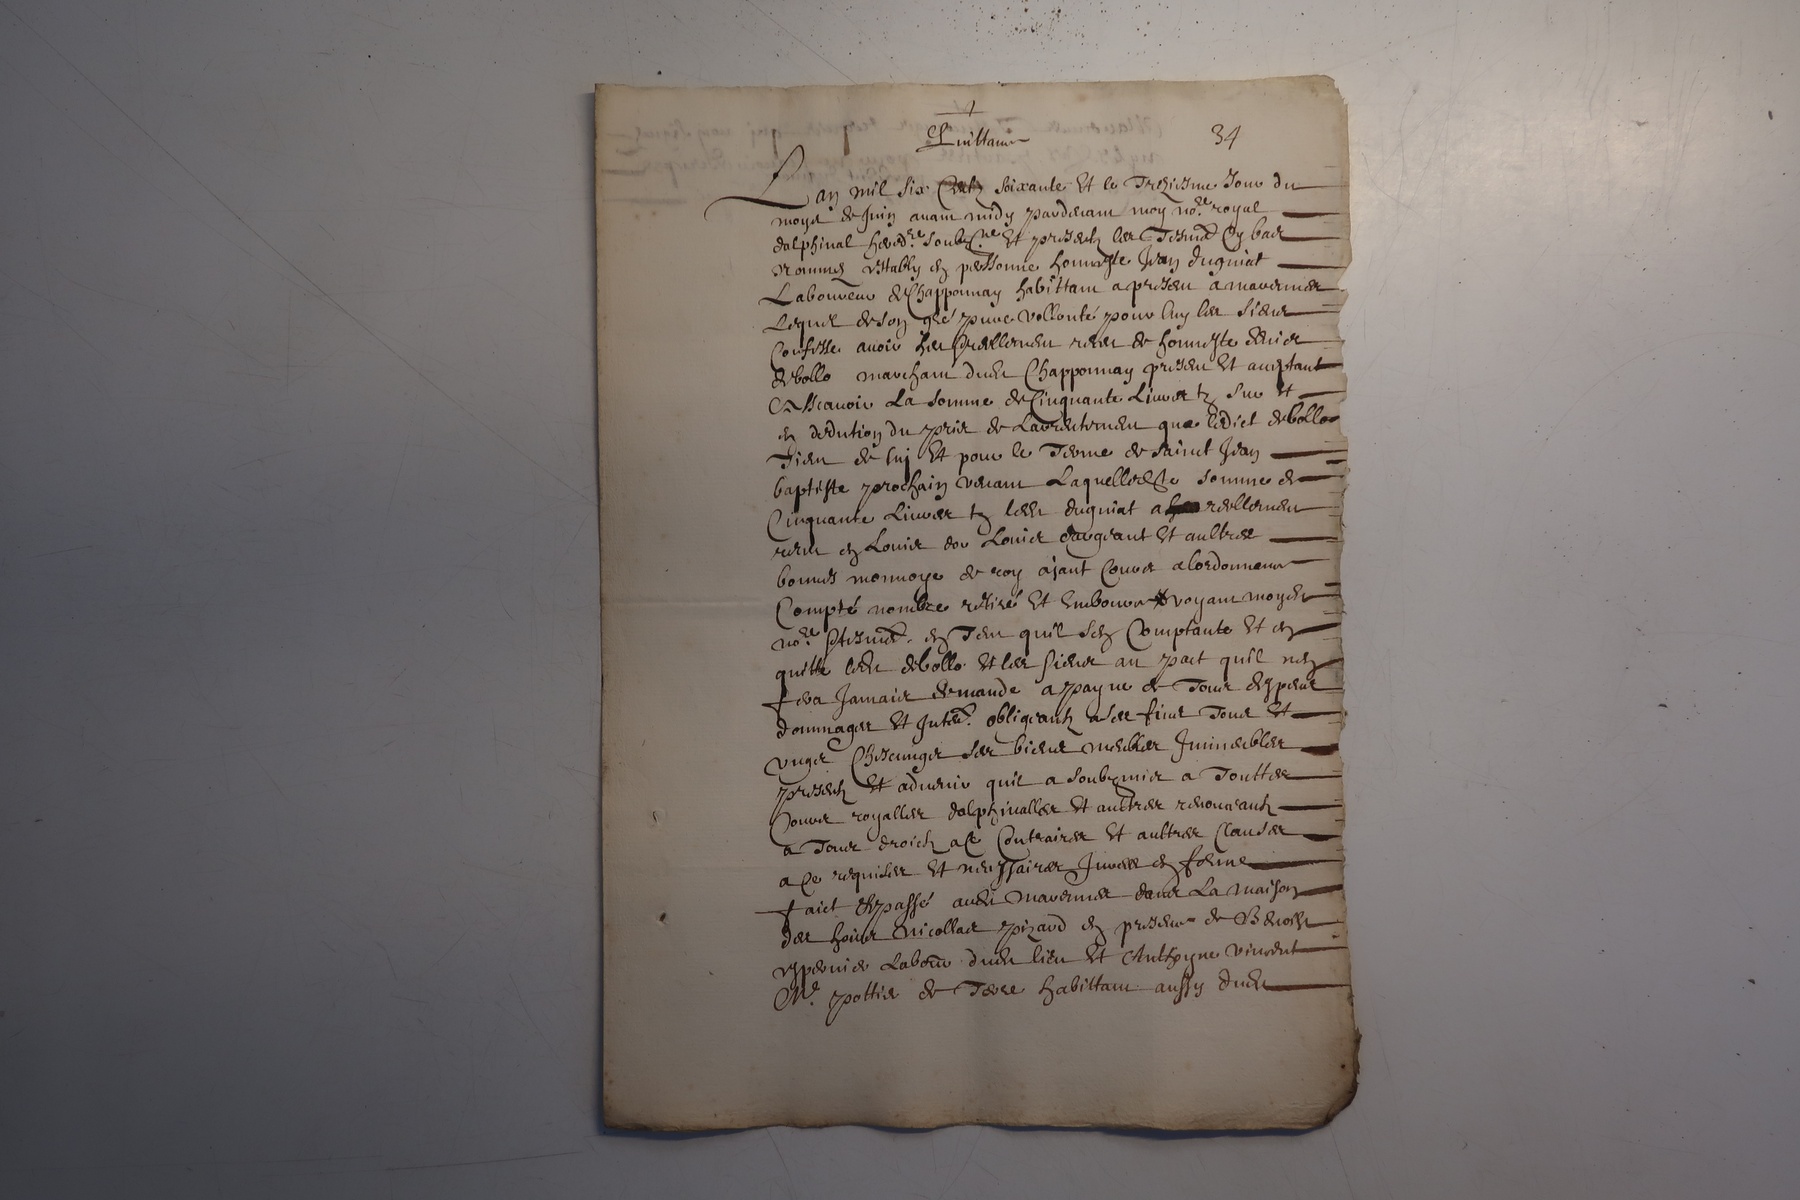 Quittance
34
Lan mil six Cents soixante Et le Treziesme Jour du
moys de Juin avant midy pardevant moy no.re royal
dalphinal hered.re soubz.ne Et presents les Tesmoz Cy bas
nommes Estably en personne honneste Jean duguiat
Laboureur de Chapponnay habittant a present a marennes
Lequel de son gré pure vollonté pour luy les siens
Confesse avoir heu reellement receu de honneste
debollo marchant dudit Chapponnay present Et acceptant
Asscavoir La somme de Cinquante Livres tz sur Et
en dedution du prix de Larrentement que ledict debollo
Tient de luy Et pour le Terme de sainct Jean
baptiste prochain venant Laquelle somme de
Cinquante Livres tz ledit duguiat a reellement
receu en Louis dor Louis dargeant Et aultres
bonnes monnoye de roy ajant Cours a lordonnence
Compté nombre retiré Et Emboursé voyant moydit
no.re Et tesmoz. en Tent quil sen Contante Et en
quitte ledit debollo Et les siens au pact quil nen
fera Jamais demande a payne de Tous despens
dommages Et Inter. obligeant a ses fins Tous Et
ungs Chescungs ses biens meubles Immeubles
presents Et advenir quil a soubzmis a Touttes
Cours royalles dalphinalles Et aultres renonceant
a Tous droicts a Ce Contraires Et aultres Clauses
a Ce requises Et necessaires Juree en forme
faict Et passé audit marennes dans La maison
des hoirs Nicollas pizard en presence de Benoist
Labour dudit lieu Et Anthoyne vincent
M.e pottier de Terre habittant aussy dudit